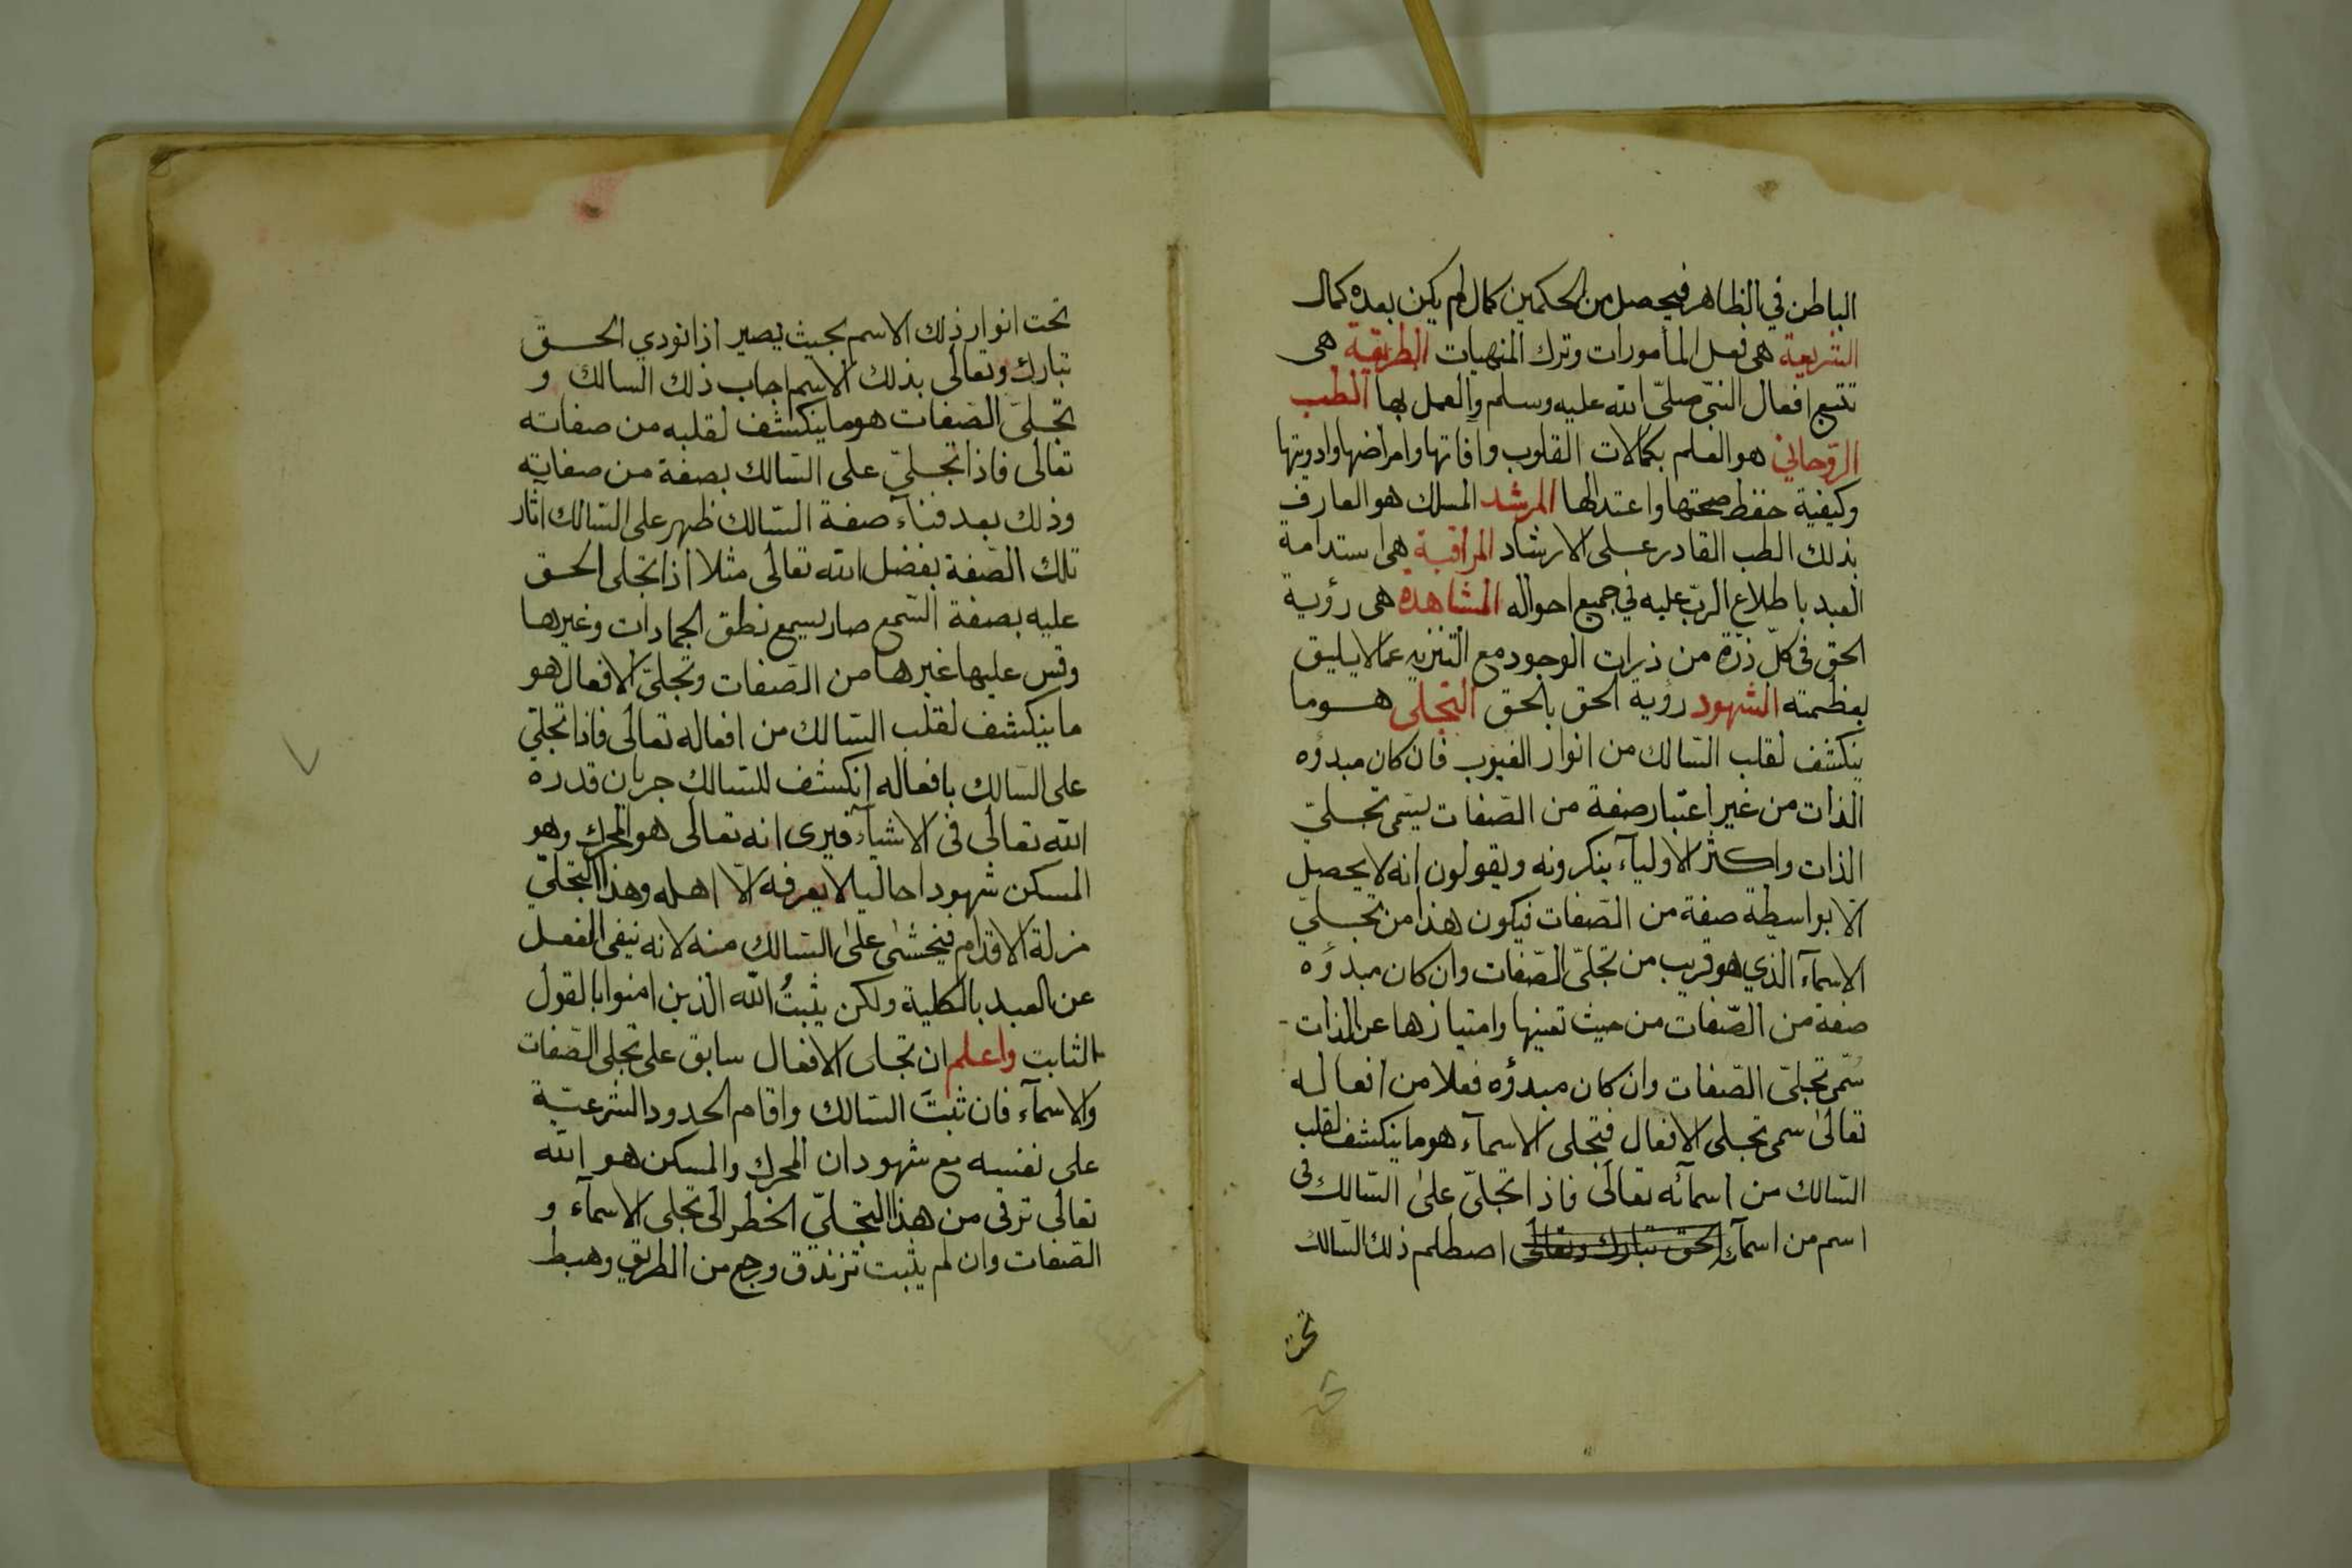 الباطن في الظاهر فيحصل من الحكمين كمال لم يكن بعده كمال
الشريعة هى فعل المأمورات وترك المنهيات الطريقة هى
تتبع افعال النبى صلىّ الله عليه وسلم والعمل بها الطب
الرّوحاني هو العلم بكمالات القلوب وآفاتها وامراضها وادويتها
وكيفية حفظ صحتها واعتدالها المرشد المسلك هو العارف
بذلك الطب القادر على الارشاد المراقبة هى استدامة
العبد باطلاع الربّ عليه في جميع احواله المشاهدة هى رؤية
الحق فى كلّ ذرّة من ذرات الوجود مع التنزيه عما لا يليق
بعظمته الشهود رؤية الحق بالحق التجلى هو ما
ينكشف لقلب السّالك من انوار الغيوب فان كان مبدؤه
الذات من غير اعتبار صفة من الصّفات يسّمى تجلىّ
الذات واكثر الاوليآء ينكرونه ويقولون انه لا يحصل
الاّ بواسطة صفة من الصّفات فيكون هذا من تجلىّ
الاسمآء الذي هو قريب من تجلىّ الصّفات وان كان مبدؤه
صفة من الصّفات من حيث تعينها وامتيازها عن الذات
سُمّى تجلىّ الصّفات وان كان مبدؤه فعلا من افعاله
تعالىٰ سمى تجلى الافعال فتجلى الاسمآء هو ما ينكشف لقلب
السّالك من اسمآئه تعالىٰ فاذا تجلىّ علىٰ السّالك فى
اسم من اسمآء الحق تبارك وتعالى اصطلم ذلك السّالك
تحت
تحت انوار ذلك الاسم بحيث يصير اذا نودي الحق
تبارك وتعالى بذلك الاسم اجاب ذلك السالك و
تجلىّ الصّفات هو ما ينكشف لقلبه من صفاته
تعالى فاذا تجلىّ على السّالك بصفة من صفاته
وذلك بعد فنآء صفة السّالك ظهر على السّالك آثار
تلك الصّفة بفضل الله تعالى مثلا اذا تجلى الحق
عليه بصفة السّمع صار يسمع نطق الجمادات وغيرها
وقس عليها غيرها من الصّفات وتجلىّ الافعال هو
ما ينكشف لقلب السّالك من افعاله تعالى فاذا تجلىّ
على السّالك بافعاله انكشف للسّالك جريان قدرة
الله تعالى فى الاشيآء فيرى انه تعالى هو المحرك وهو
المسكن شهودا حاليا لا يعرفه الاّ اهله وهذا التجلىّ
مزلة الاقدام فيخشىٰ علىٰ السّالك منه لانه ينفى الفعل
عن العبد بالكلية ولكن يثبتُ الله الذين امنوا بالقول
الثابت واعلم ان تجلى الافعال سابق على تجلى الصّفات
والاسمآء فان ثبتَ السّالك واقام الحدود الشرعيّة
على نفسه مع شهود ان المحرك والمسكن هو الله
تعالى ترقى من هذا التجلىّ الخطر الى تجلى الاسمآء و
الصّفات وان لم يثبت تزندق ورجع من الطريق وهبط